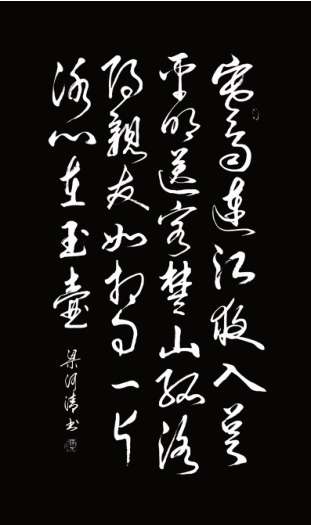 寒雨連江夜入吳
平明送客楚山孤洛
陽親友如相問一片
冰心在玉壺
梁河清书